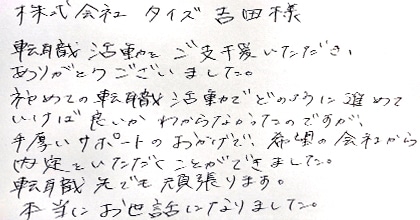 株式会社 タイズ 吉田様
転職活動をご支援いただき、
ありがとうございました。
初めての転職活動でどのように進めて
いけば良いかわからなかったのですが、
手厚いサポートのおかげで、希望の会社から
内定をいただくことができました。
転職先でも頑張ります。
本当にお世話になりました。